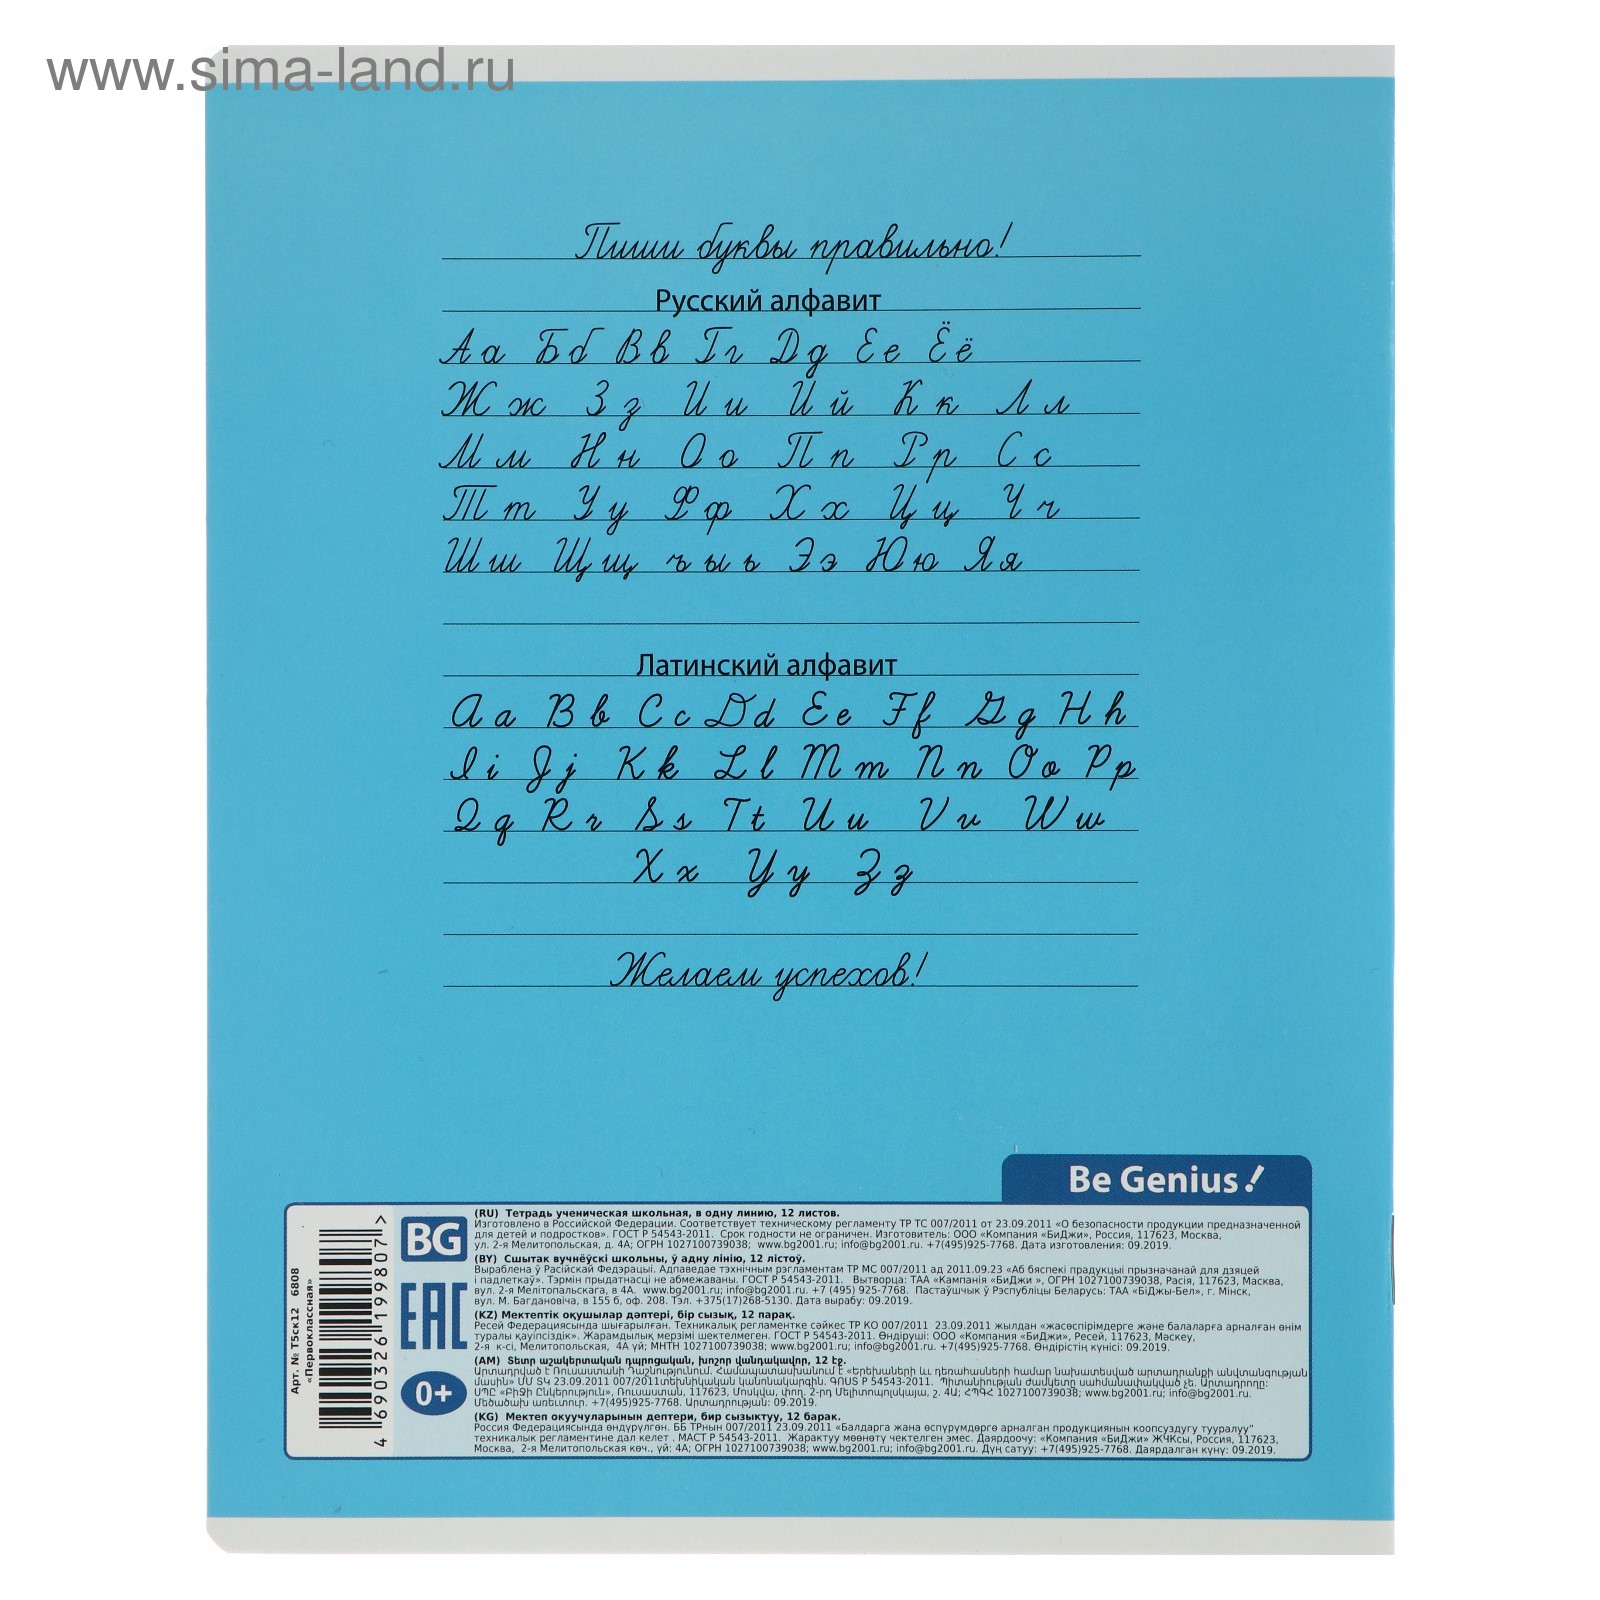 www.sima-land.ru
Пиши буквы правильно!
Русский алфавит
Аа Бб Вв Гг Дд Ее Ёё
Жж Зз Ии Йй Кк Лл
Мм Нн Оо Пп Рр Сс
Тт Уу Фф Хх Цц Чч
Шш Щщ ъ ы ь Ээ Юю Яя
Латинский алфавит
Aa Bb Cc Dd Ee Ff Gg Hh
Ii Jj Kk Ll Mm Nn Oo Pp
Qq Rr Ss Tt Uu Vv Ww
Xx Yy Zz
Желаем успехов!
Be Genius!
Арт. № Т5ск12 6808
«Первоклассная»
4 690326 199807 >
BG
EAC
0+
(RU) Тетрадь ученическая школьная, в одну линию, 12 листов.
Изготовлено в Российской Федерации. Соответствует техническому регламенту ТР ТС 007/2011 от 23.09.2011 «О безопасности продукции предназначенной
для детей и подростков». ГОСТ Р 54543-2011. Срок годности не ограничен. Изготовитель: ООО «Компания «БиДжи», Россия, 117623, Москва,
ул. 2-я Мелитопольская, д. 4А; ОГРН 1027100739038; www.bg2001.ru; info@bg2001.ru. +7(495)925-7768. Дата изготовления: 09.2019.
(BY) Сшытак вучнёўскі школьны, ў адну лінію, 12 лістоў.
Выраблена ў Расійскай Федэрацыі. Адпаведае тэхнічным рэгламентам ТР МС 007/2011 ад 2011.09.23 «Аб бяспекі прадукцыі прызначанай для дзяцей
і падлеткаў». Тэрмін прыдатнасці не абмежаваны. ГОСТ Р 54543-2011. Вытворца: ТАА «Кампанія «БиДжи », ОГРН 1027100739038, Расія, 117623, Масква,
вул. 2-я Мелітопальская, в 4А. www.bg2001.ru; info@bg2001.ru. +7 (495) 925-7768. Пастаўшчык ў Рэспубліцы Беларусь: ТАА «БіДжы-Бел», г. Мінск,
вул. М. Багдановіча, в 155 б, оф. 208. Тэл. +375(17)268-5130. Дата вырабу: 09.2019.
(KZ) Мектептік оқушылар дәптері, бір сызық, 12 парақ.
Ресей Федерациясында шығарылған. Техникалық регламентке сәйкес ТР КО 007/2011 23.09.2011 жылдан «жасөспірімдерге және балаларға арналған өнім
туралы қауіпсіздік». Жарамдылық мерзімі шектелмеген. ГОСТ Р 54543-2011. Өндіруші: ООО «Компания «БиДжи», Ресей, 117623, Мәскеу,
2-я к-сі, Мелитопольная, 4А үй; МНТН 1027100739038; www.bg2001.ru; info@bg2001.ru. +7(495)925-7768. Өндірістің күнісі: 09.2019.
(AM) Տետր աշակերտական դպրոցական, խոշոր վանդակավոր, 12 էջ.
Արտադրված է Ռուսաստանի Դաշնությունում. Համապատասխանում է «Երեխաների և դեռահասների համար նախատեսված արտադրանքի անվտանգության
մասին» ՄՄ ՏԿ 23.09.2011 007/2011տեխնիկական կանոնակարգին. ԳՈՍՏ Р 54543-2011. Պիտանիության ժամկետը սահմանափակված չէ. Արտադրողը:
ՍՊԸ «ԲիՋի Ընկերություն», Ռուսաստան, 117623, Մոսկվա, փող. 2-րդ Մելիտոպոլսկայա, շ. 4Ա; ՀՊԳՀ 1027100739038; www.bg2001.ru; info@bg2001.ru.
Մեծածախ առևտուր. +7(495)925-7768. Արտադրության: 09.2019.
(KG) Мектеп окуучуларынын дептери, бир сызыктуу, 12 барак.
Россия Федерациясында өндүрүлгөн. ББ ТРнын 007/2011 23.09.2011 «Балдарга жана өспүрүмдөргө арналган продукциянын коопсуздугу тууралуу"
техникалык регламентине дал келет . МАСТ Р 54543-2011. Жарактуу мөөнөтү чектелген эмес. Даярдоочу: «Компания «БиДжи» ЖЧКсы, Россия, 117623,
Москва, 2-я Мелитопольская көч., үй: 4А; ОГРН 1027100739038; www.bg2001.ru; info@bg2001.ru. Дүң сатуу: +7(495)925-7768. Даярдалган күнү: 09.2019.